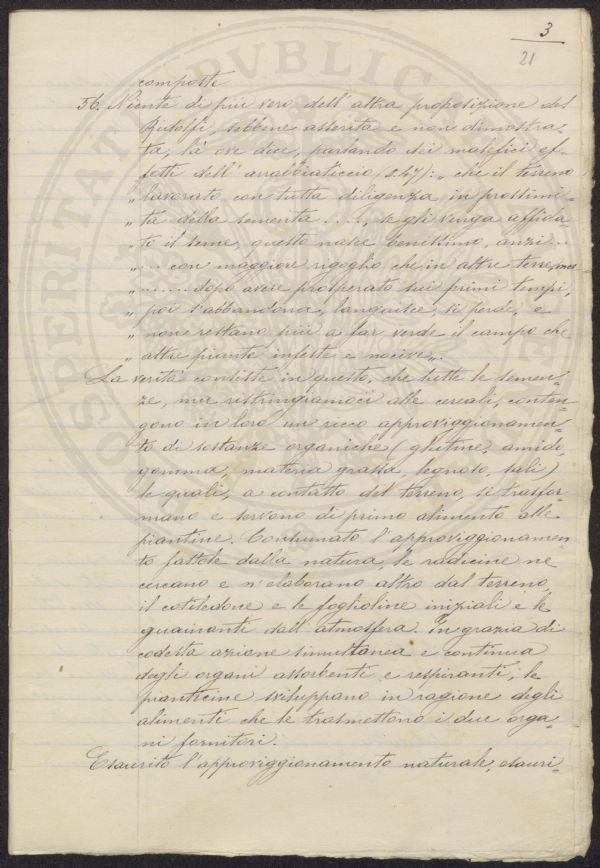 3
21
composti
56. Niente di più vero dell'altra proposizione del
Ridolfi, sebbene asserita e non dimostra-
ta, là ove dice, parlando dei malefici ef-
fetti dell'arrabbiaticcio, S. 47): „ che il terreno
„ lavorato con tutta diligenza in prossimi-
„ tà della sementa ...., se gli venga affida-
„ to il seme, questo nasce benissimo, anzi ...
„ ... con maggiore rigoglio che in altre terre, ma
„ ...... dopo avere prosperato nei primi tempi,
„ poi s'abbandona, languisce, si perde, e
„ non restano più a far verde il campo che
„ altre piante infeste e nocive „.
La verità consiste in questo, che tutte le semen-
ze, ma ristringiamoci alle cereali, conten-
gono in loro un ricco approviggionamen-
to di sostanze organiche (glutine, amido,
gomma, materia grassa, legnoso, sali)
le quali, a contatto del terreno, si trasfor-
mano e servono di primo alimento alle
piantine. Consumato l'approviggionamen
to fattole dalla natura, le radicine ne
cercano e n'elaborano altro dal terreno,
il cotiledone e le foglioline iniziali e le
guainanti dall'atmosfera. In grazia di
codesta azione simultanea e continua
degli organi assorbenti e respiranti, le
pianticine sviluppano in ragione degli
alimenti che le trasmettono i due orga-
ni fornitori.
Esaurito l'approviggionamento naturale, esauri-